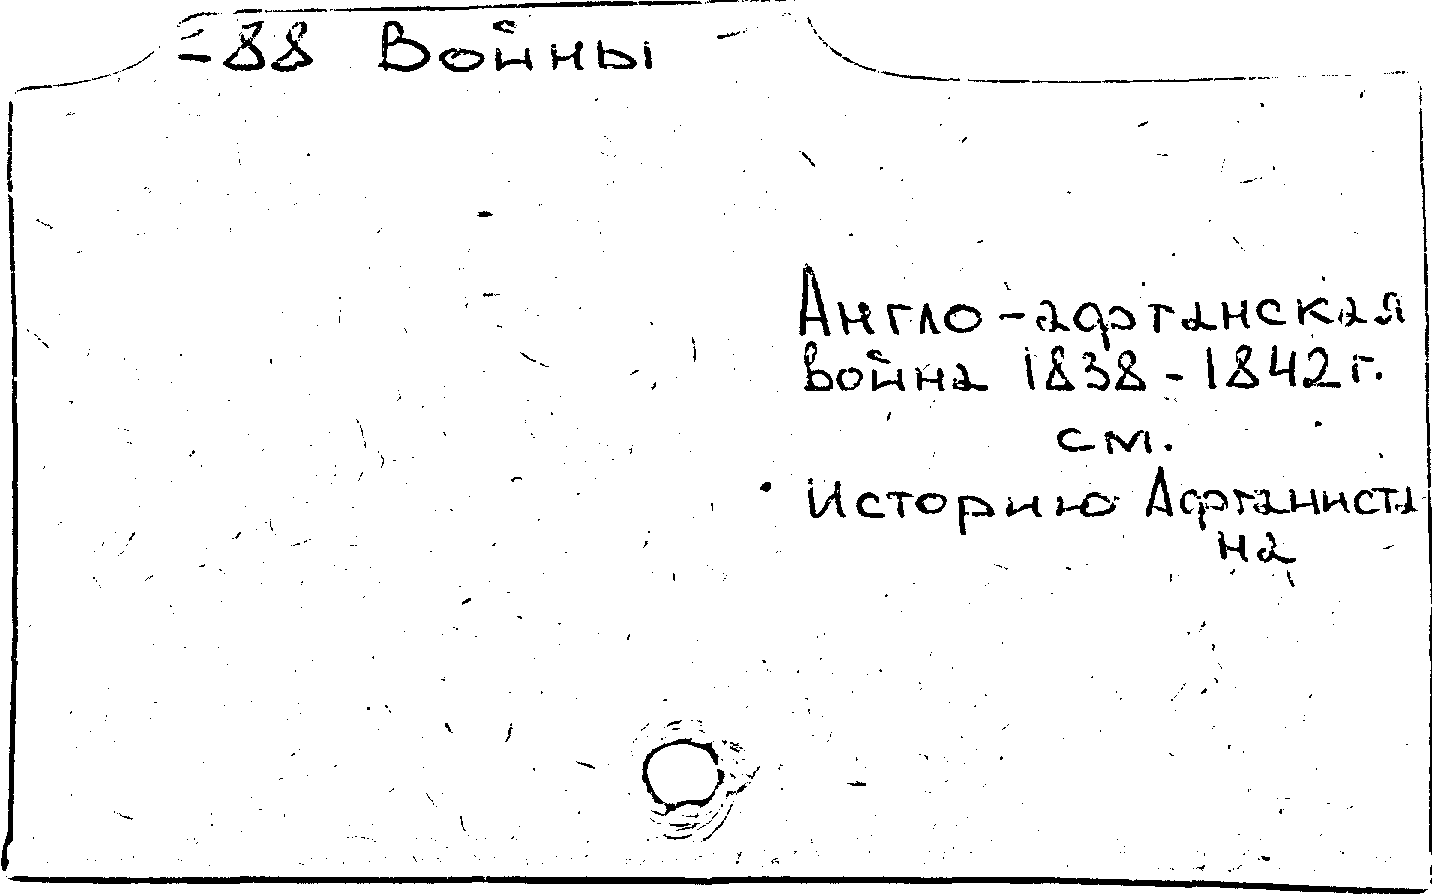 -88 Войны
Англо-афганская
война 1838-1842г.
см.
Историю Афганиста
на